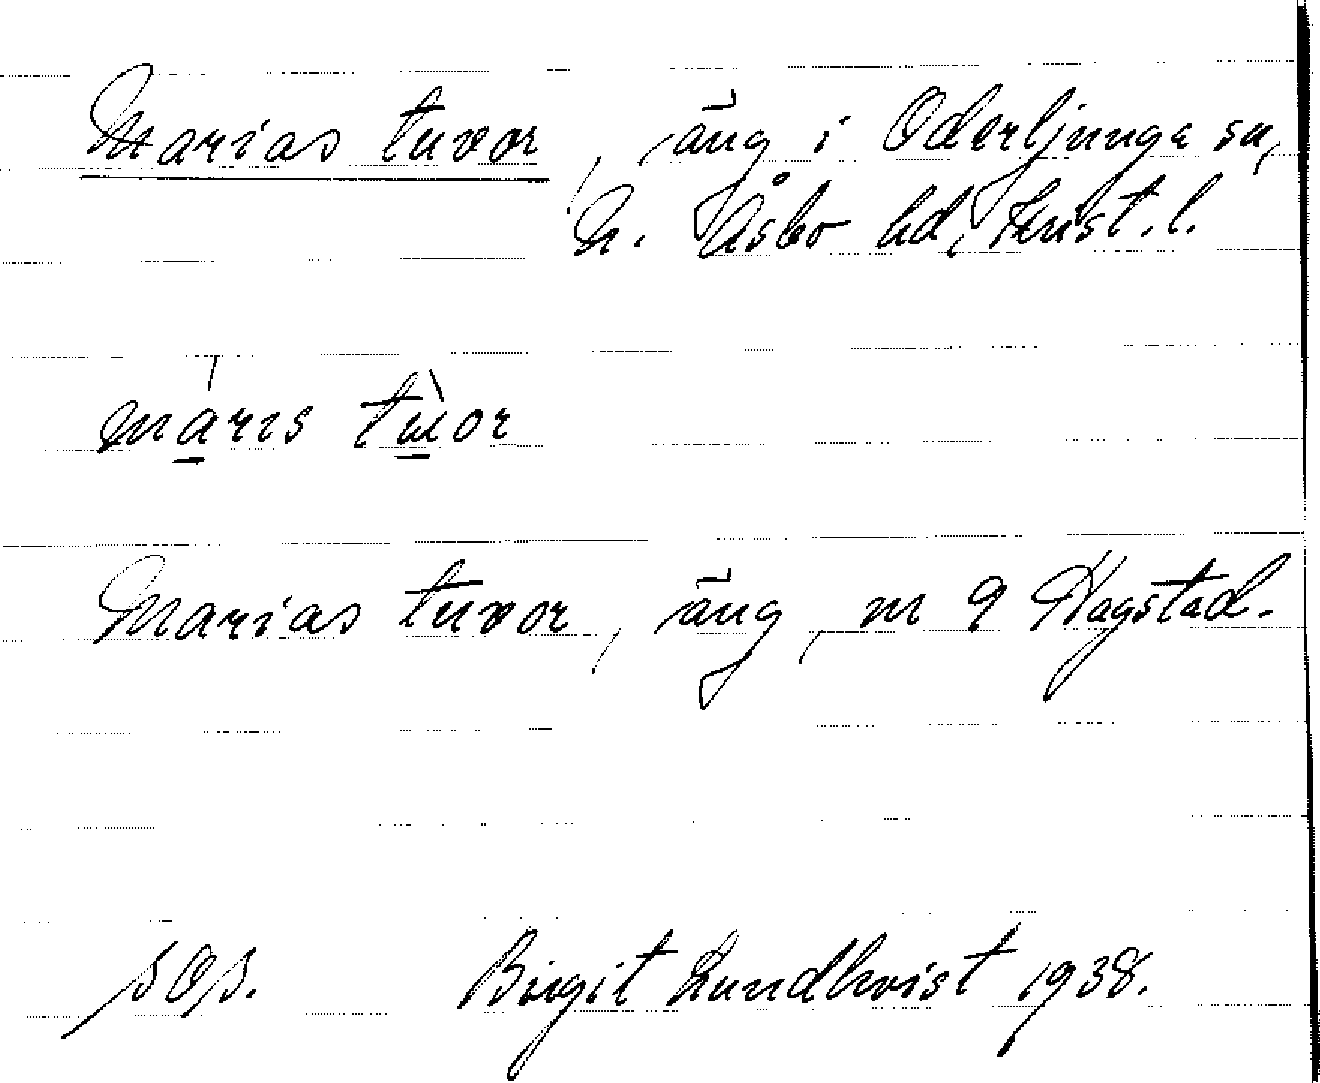 Marias tuvor, äng i Oderljunga sn,
N. Åsbo hd, Krist. l.
máris tùor
Marias tuvor, äng, nr 9 Hagstad.
sos. Birgit Lundkvist 1938.